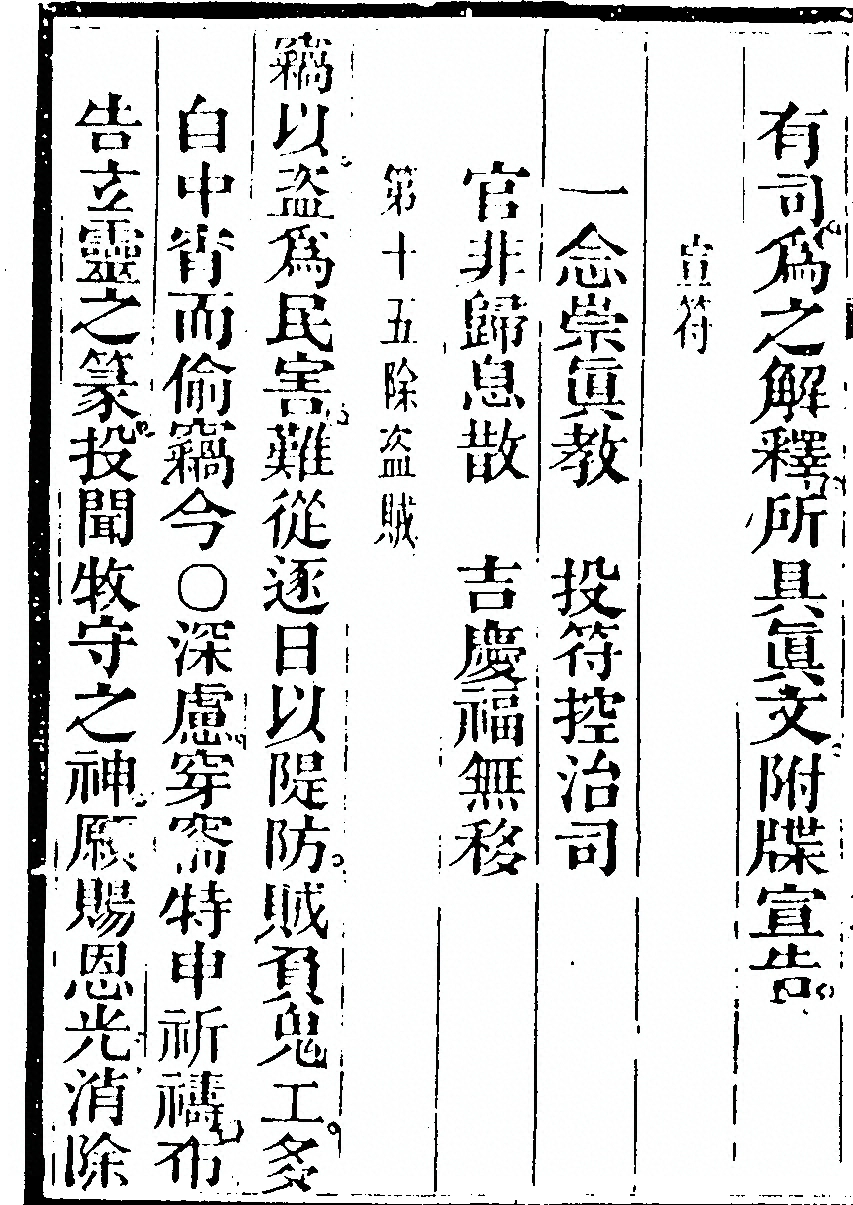 有司為之解釋所具眞文附牒宣告
宣符
一念崇眞教　投符控治司
官非歸息散　吉慶福無移
第十五除盗賊
竊以盗為民害難從逐日以隄防賊負鬼工多
自中宵而偷竊今○深慮穿窬特申祈禱布
告立靈之篆投聞牧守之神願賜恩光消除